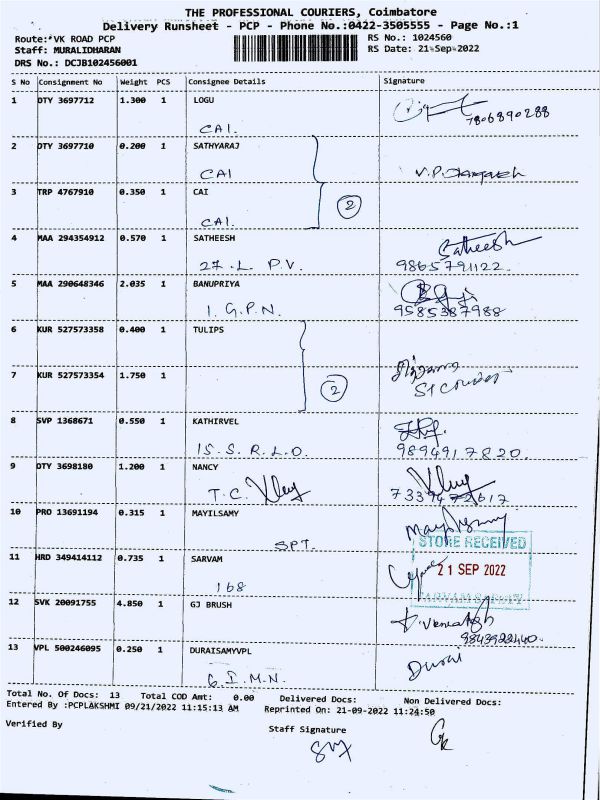 THE PROFESSIONAL COURIERS, Coimbatore
Delivery Runsheet - PCP - Phone No.:0422-3505555 - Page No.:1
Route:*VK ROAD PCP
RS No.: 1024560
Staff: MURALIDHARAN
RS Date: 21-Sep-2022
DRS No.: DCJB102456001
S No Consignment No Weight PCS Consignee Details Signature
1 DTY 3697712 1.300 1 LOGU
CAI. 7806890288
2 DTY 3697710 0.200 1 SATHYARAJ
CAI V.P.
3 TRP 4767910 0.350 1 CAI
CAI. 2
4 MAA 294354912 0.570 1 SATHEESH Satheesh
27.L P.V. 9865791122.
5 MAA 290648346 2.035 1 BANUPRIYA
1. G.P.N. 9585387988
6 KUR 527573358 0.400 1 TULIPS
7 KUR 527573354 1.750 1 2 ST Courier
8 SVP 1368671 0.550 1 KATHIRVEL
15. S. R.L.O. 9894917820.
9 DTY 3698180 1.200 1 NANCY
T.C.
10 PRO 13691194 0.315 1 MAYILSAMY
SPT.
STORE RECEIVED
11 HRD 349414112 0.735 1 SARVAM
21 SEP 2022
168
12 SVK 20091755 4.850 1 GJ BRUSH
13 VPL 500246095 0.250 1 DURAISAMYVPL Durai
G.I.M.N.
Total No. Of Docs: 13 Total COD Amt: 0.00 Delivered Docs: Non Delivered Docs:
Entered By :PCPLAKSHMI 09/21/2022 11:15:13 AM Reprinted On: 21-09-2022 11:24:50
Verified By Staff Signature